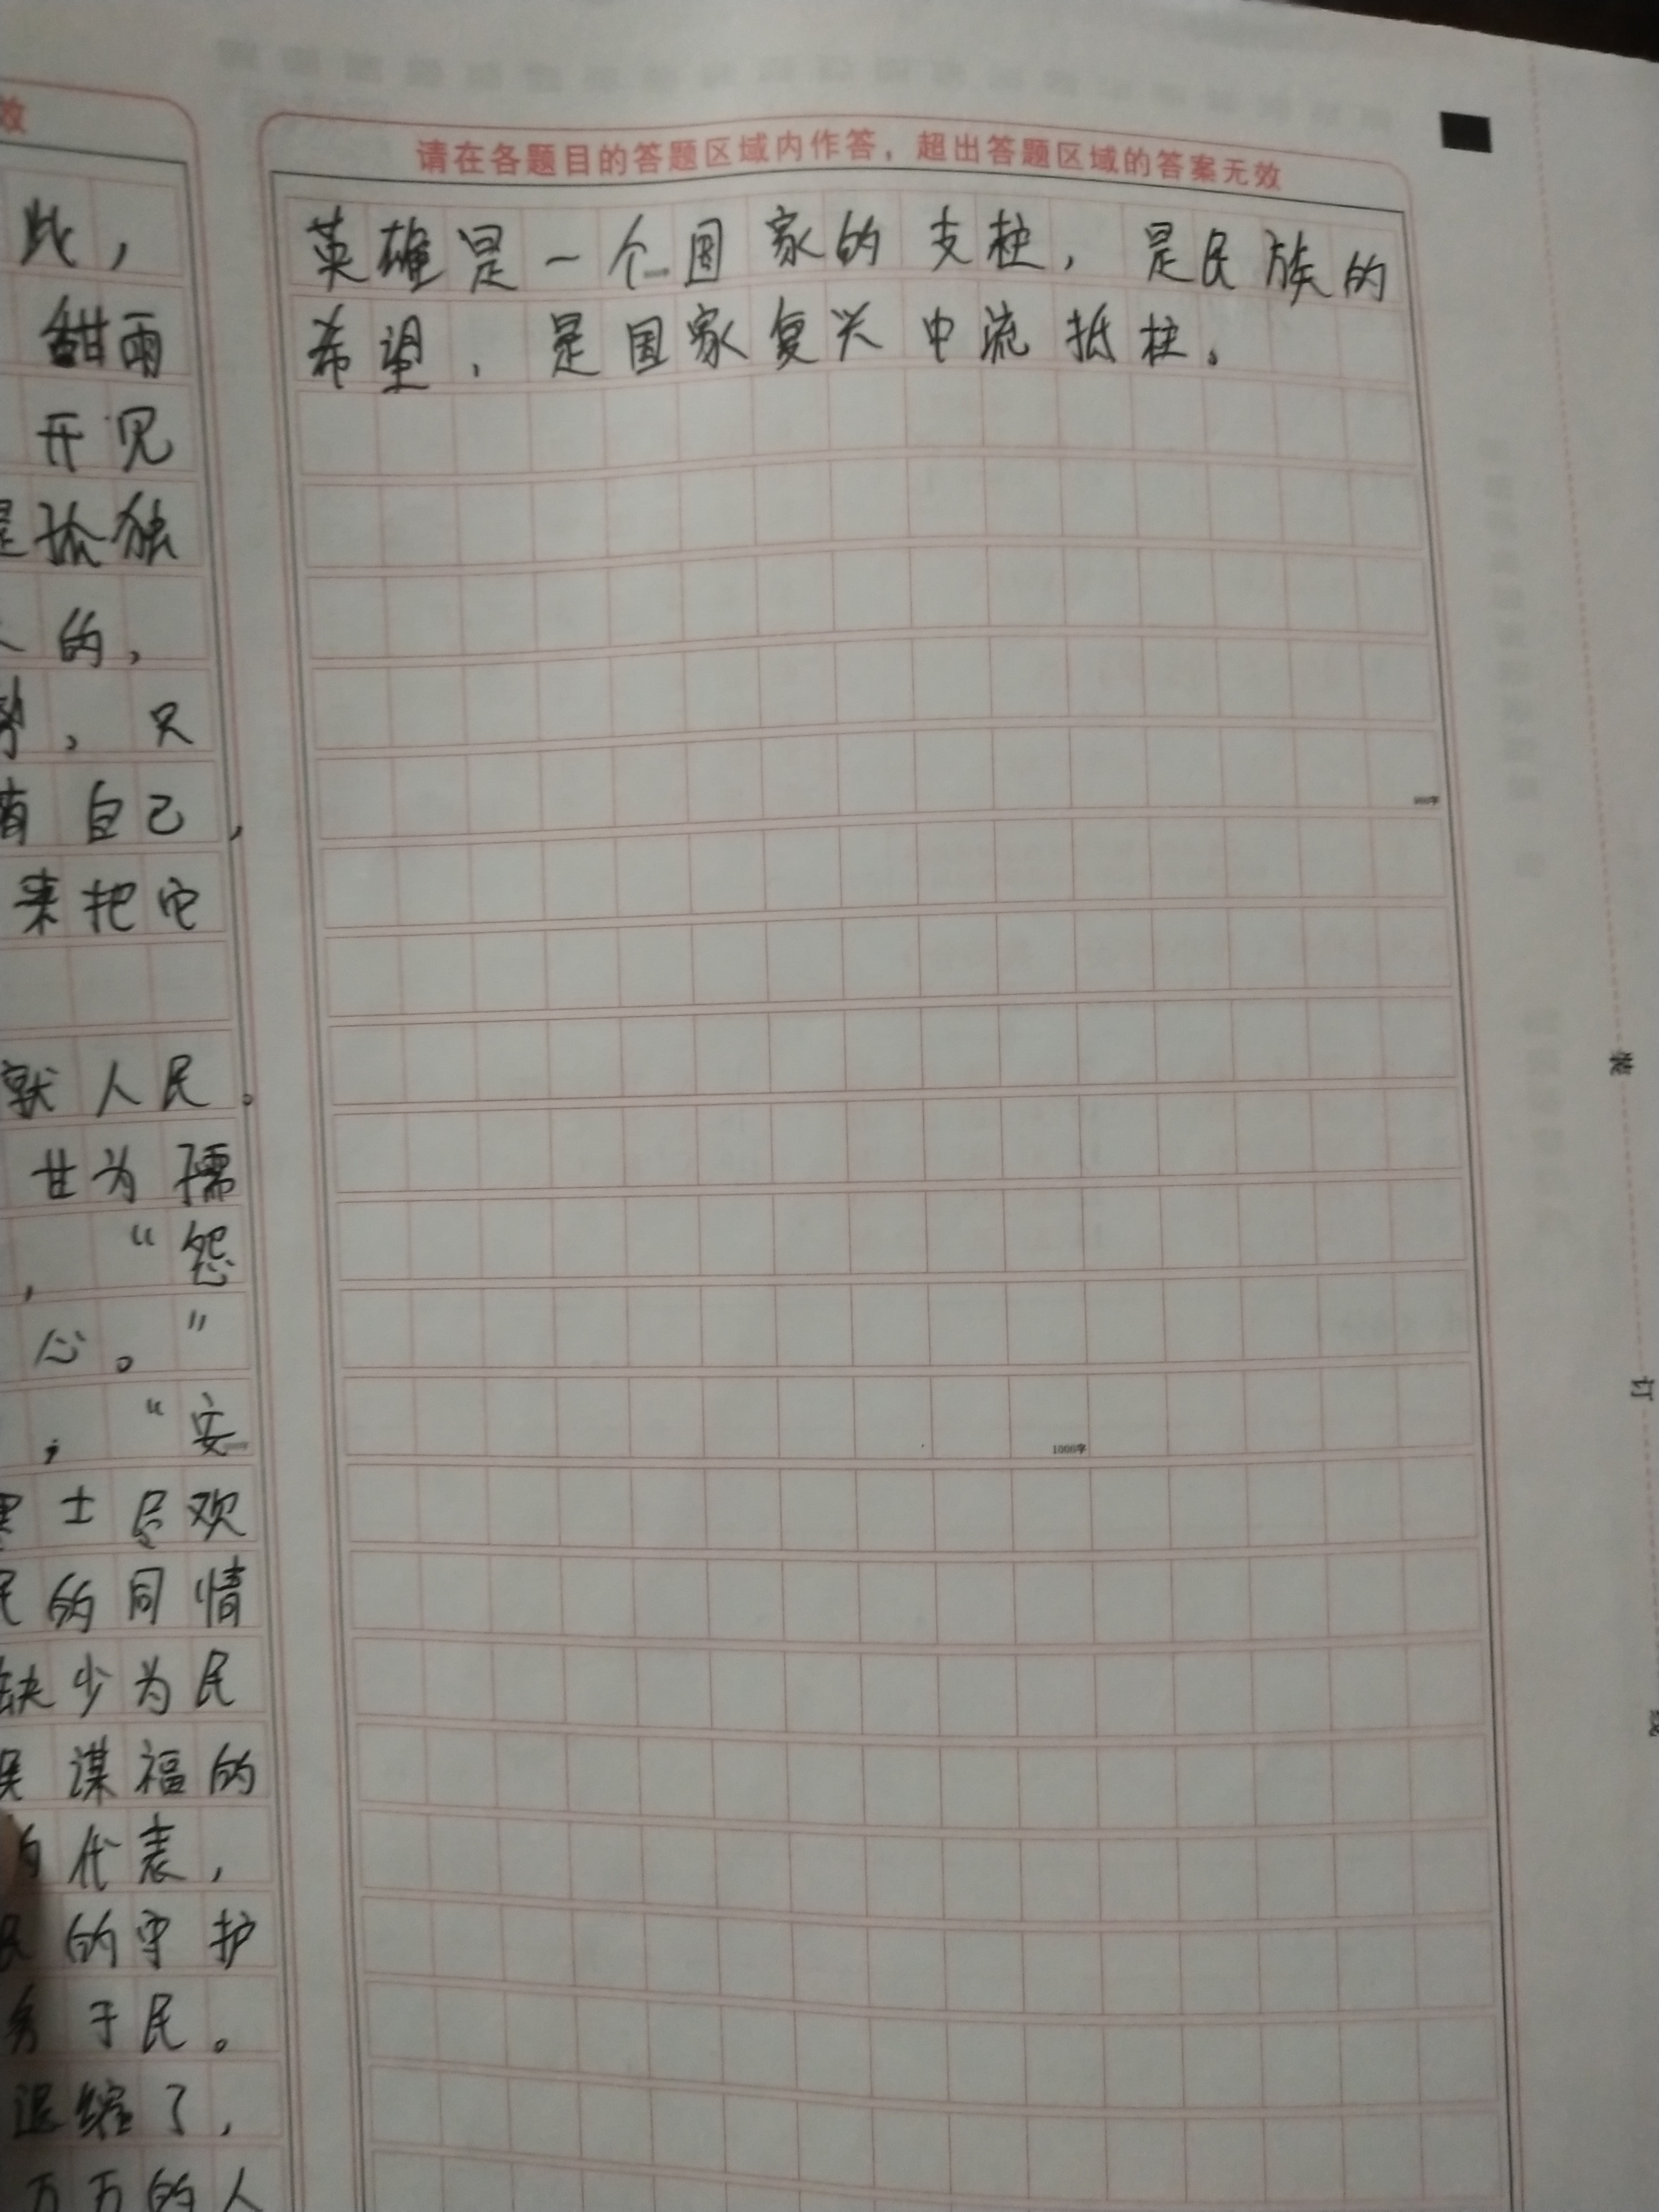 效
请在各题目的答题区域内作答，超出答题区域的答案无效
此，
甜雨
开见
孤独
的，
，只
自己，
来把它
就人民。
甘为孺
，“怨
心。”
，“安
士尽欢
的同情
缺少为民
谋福的
代表，
的守护
于民。
退缩了，
万万的人
英雄是一个国家的支柱，是民族的
希望，是国家复兴中流抵柱。
900字
1000字
装
订